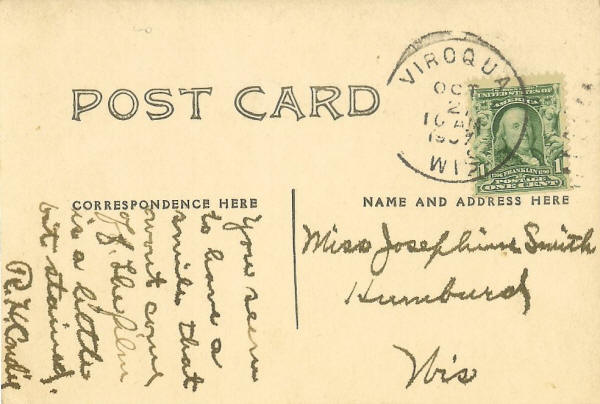 POST CARD
VIROQUA
OCT
10 AM
1907
WIS.
UNITED STATES OF
AMERICA
1 1
1706 FRANKLIN 1790
POSTAGE
ONE CENT
CORRESPONDENCE HERE
You seem
to have a
smile that
wont come
off. The film
is a little
bit stained.
R.H.
NAME AND ADDRESS HERE
Miss Josephine Smith
Humburd
Wis